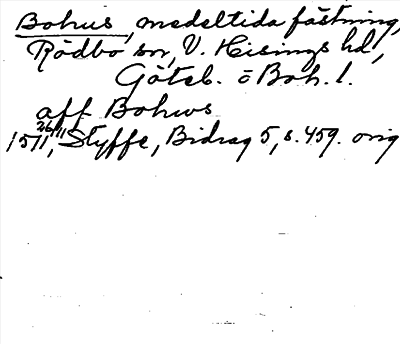 Bohus, medeltida fästning,
Rödbo sn, V. Hisings hd,
Göteb. o Boh. l.
aff Bohws
1511 26/11, Styffe, Bidrag 5, s. 459. orig